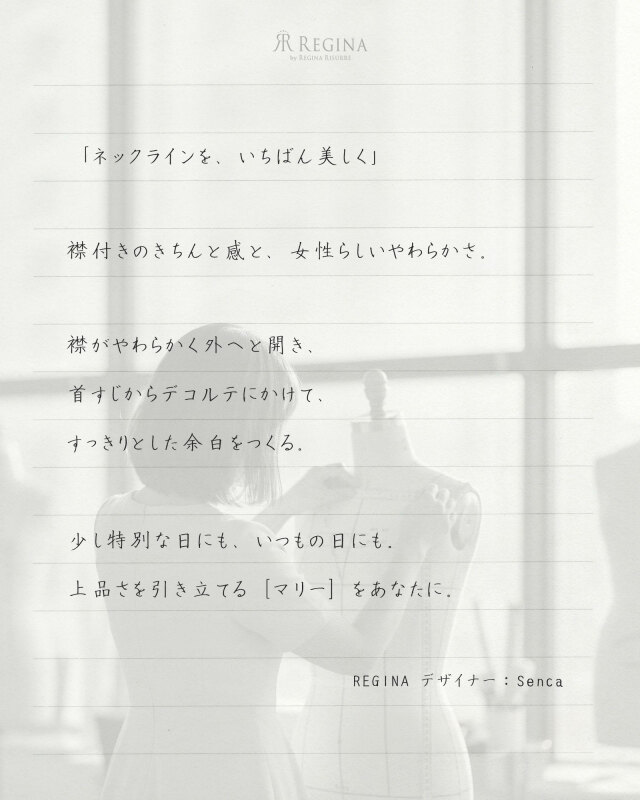 REGINA
by REGINA RISURRE
「ネックラインを、いちばん美しく」
襟付きのきちんと感と、女性らしいやわらかさ。
襟がやわらかく外へと開き、
首すじからデコルテにかけて、
すっきりとした余白をつくる。
少し特別な日にも、いつもの日にも。
上品さを引き立てる［マリー］をあなたに。
REGINA デザイナー：Senca